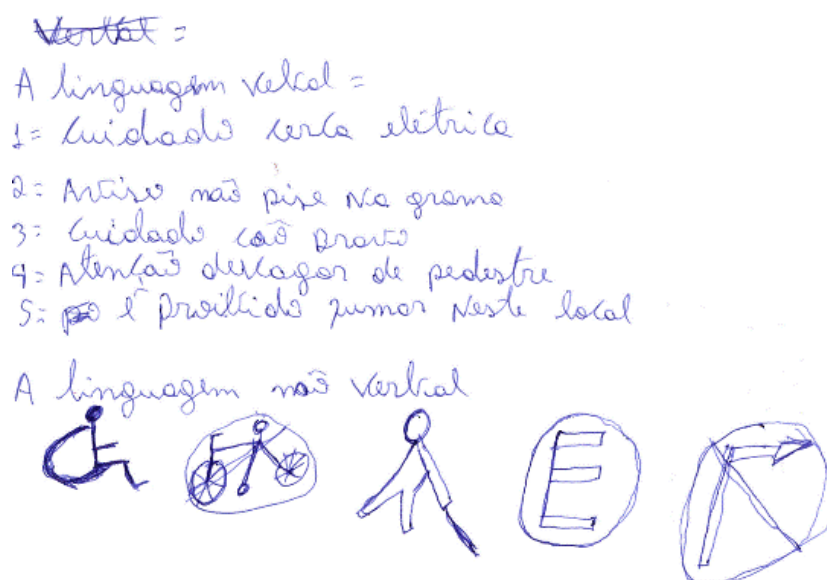 Verbal =
A linguagem Velcal =
1= Cuidado cerca elétrica
2= não pise Na grama
3= Cuidado cão Bravo
4= Atenção de pedestre
5= é Proibido fumar Neste local
A linguagem não Verbal
E